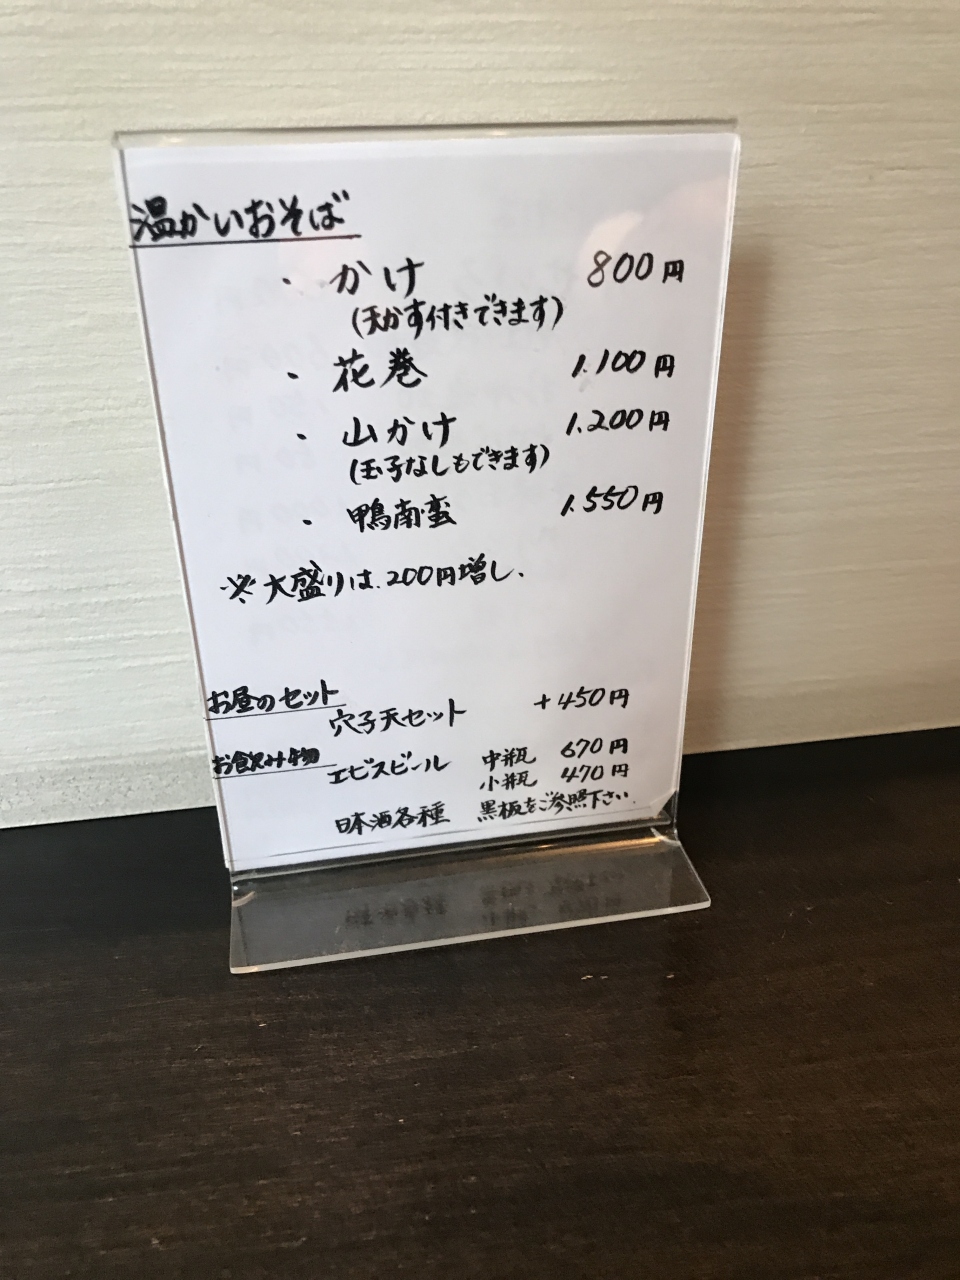 温かいおそば
・かけ 800円
(天かす付きできます)
・花巻 1.100円
・山かけ 1.200円
(玉子なしもできます)
・鴨南蛮 1.550円
※大盛りは.200円増し.
お昼のセット
穴子天セット +450円
お飲み物
エビスビール 中瓶 670円
小瓶 470円
日本酒各種 黒板をご参照下さい.